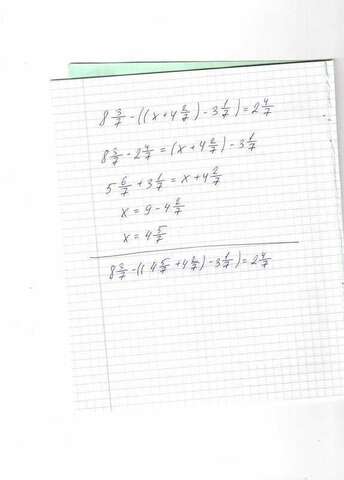 8 3/7 - ((x + 4 2/7) - 3 1/7) = 2 4/7
8 3/7 - 2 4/7 = (x + 4 2/7) - 3 1/7
5 6/7 + 3 1/7 = x + 4 2/7
x = 9 - 4 2/7
x = 4 5/7
8 3/7 - ((4 5/7 + 4 2/7) - 3 1/7) = 2 4/7